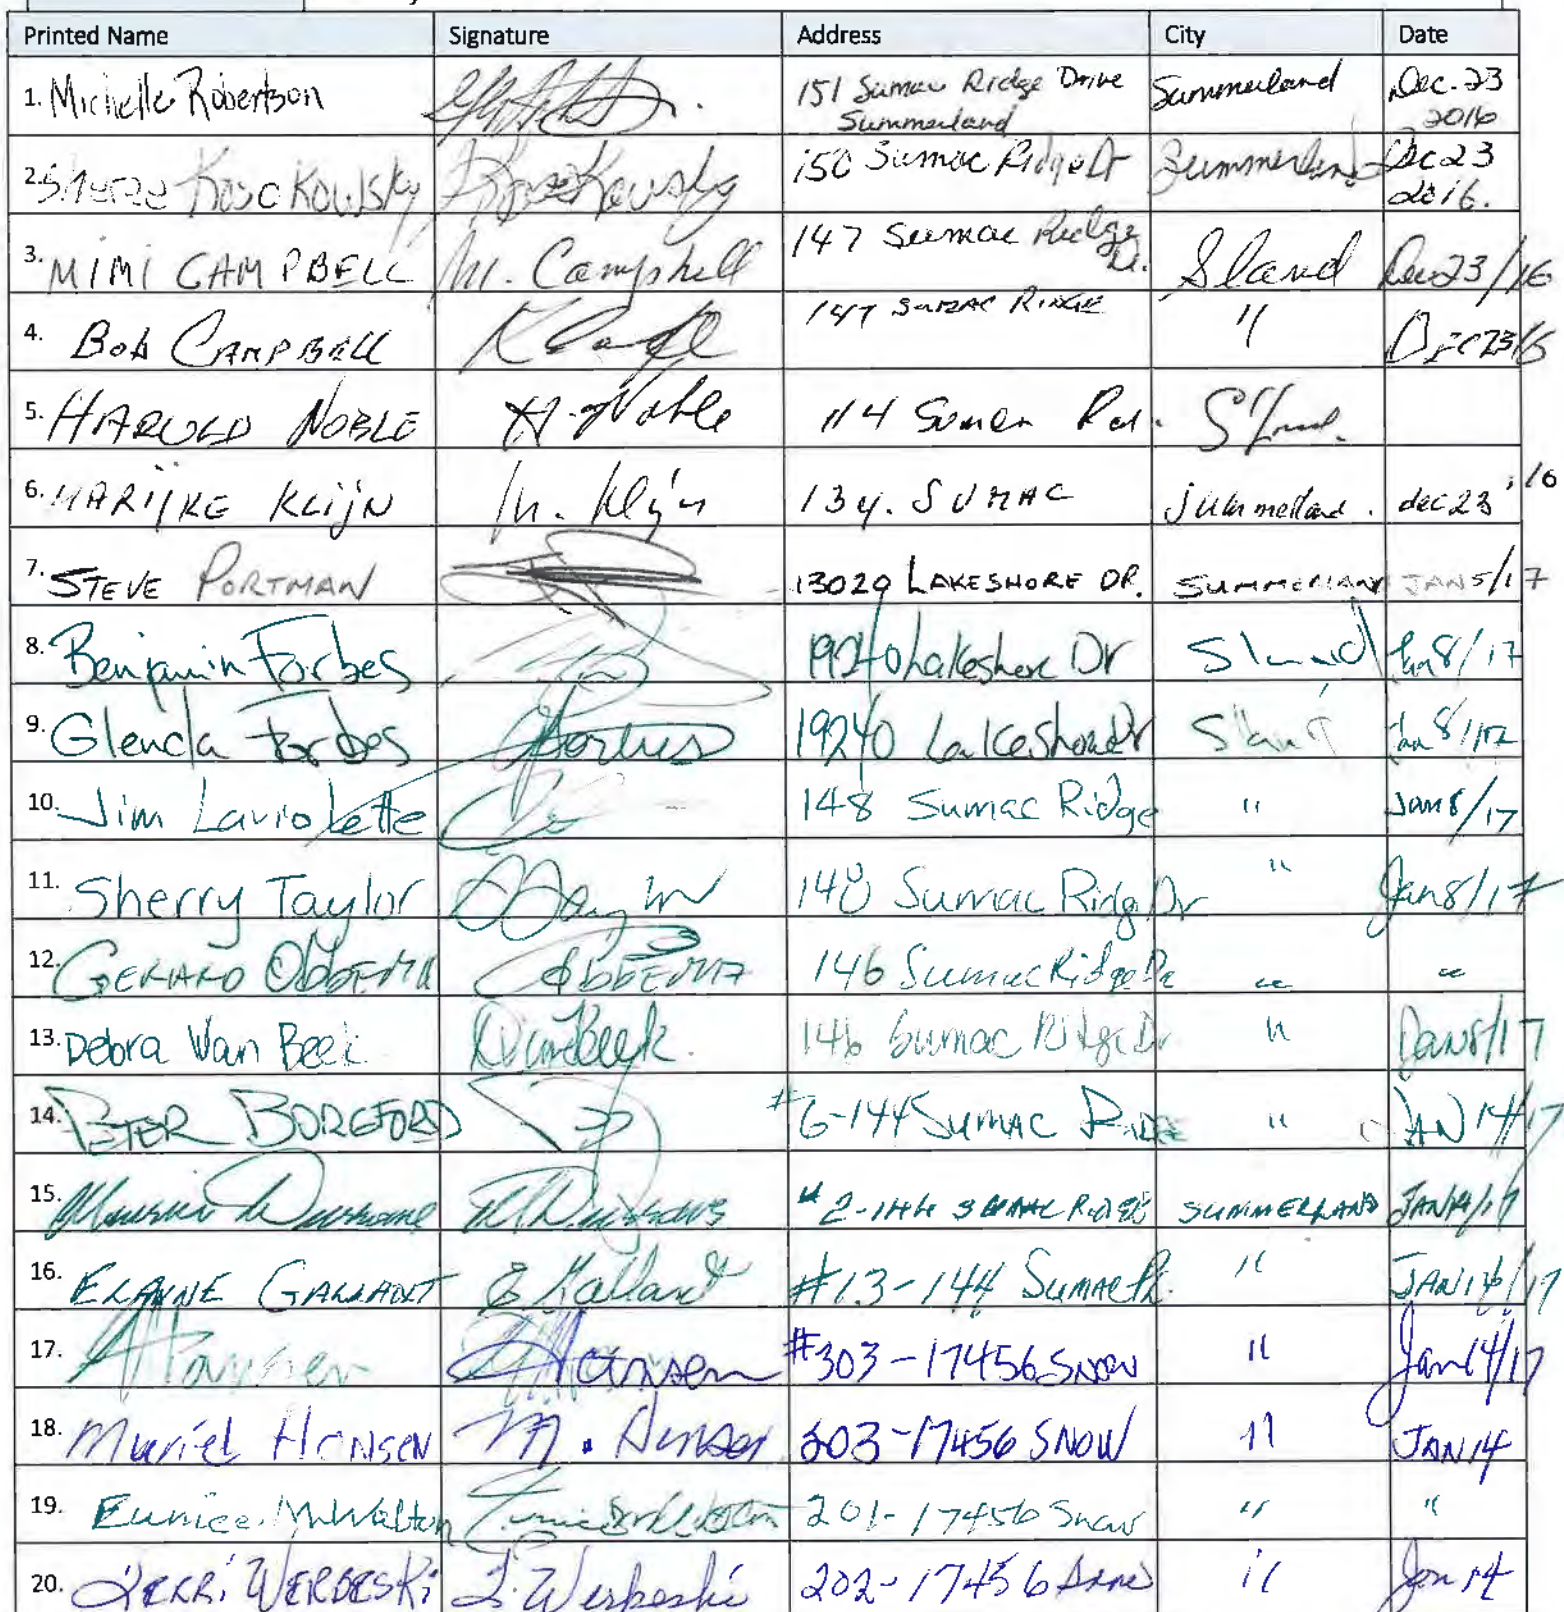 Printed Name Signature Address City Date
1. Michelle Robertson 151 Sumac Ridge Drive Summerland Dec. 23
Summerland 2016
2. Kosokowsky Kosokowsky 150 Sumac Ridge Dr Summerland Dec 23
2016.
3. MIMI CAMPBELL M. Campbell 147 Sumac Ridge Dr. S'land Dec 23/16
4. BOB CAMPBELL 147 SUMAC RIDGE " DEC 23/16
5. HAROLD NOBLE H. Noble 114 Sumac Rd. S'land.
6. MARIJKE KLIJN M. Klijn 134. SUMAC Summerland. dec 23 '16
7. STEVE PORTMAN 13029 LAKESHORE DR. SUMMERLAND JAN 5/17
8. Benjamin Forbes 19240 Lakeshore Dr S'land Jan 8/17
9. Glenda Forbes Forbes 19240 Lakeshore Dr S'land Jan 8/17
10. Jim Laviolette 148 Sumac Ridge " Jan 8/17
11. Sherry Taylor 140 Sumac Ridg Dr " Jan 8/17
12. GERARD OBBEMA OBBEMA 146 Sumac Ridge Dr " "
13. Debra Van Beek D Van Beek. 146 Sumac Ridge Dr " Jan 8/17
14. PETER BOREFORD #6-144 SUMAC RIDGE " JAN 14/17
15. #2-144 SUMAC RIDGE SUMMERLAND JAN 14/17
16. ELAYNE GALLANT E Gallant #13-144 Sumac R. " JAN 14/17
17. Hansen Hansen #303-17456 SNOW " Jan 14/17
18. Muriel Hansen M. Hansen 303-17456 SNOW " JAN 14
19. Eunice. M. Walton Eunice M Walton 201-17456 Snow " "
20. WERBESKI Werbeski 202-17456 Snow " Jan 14